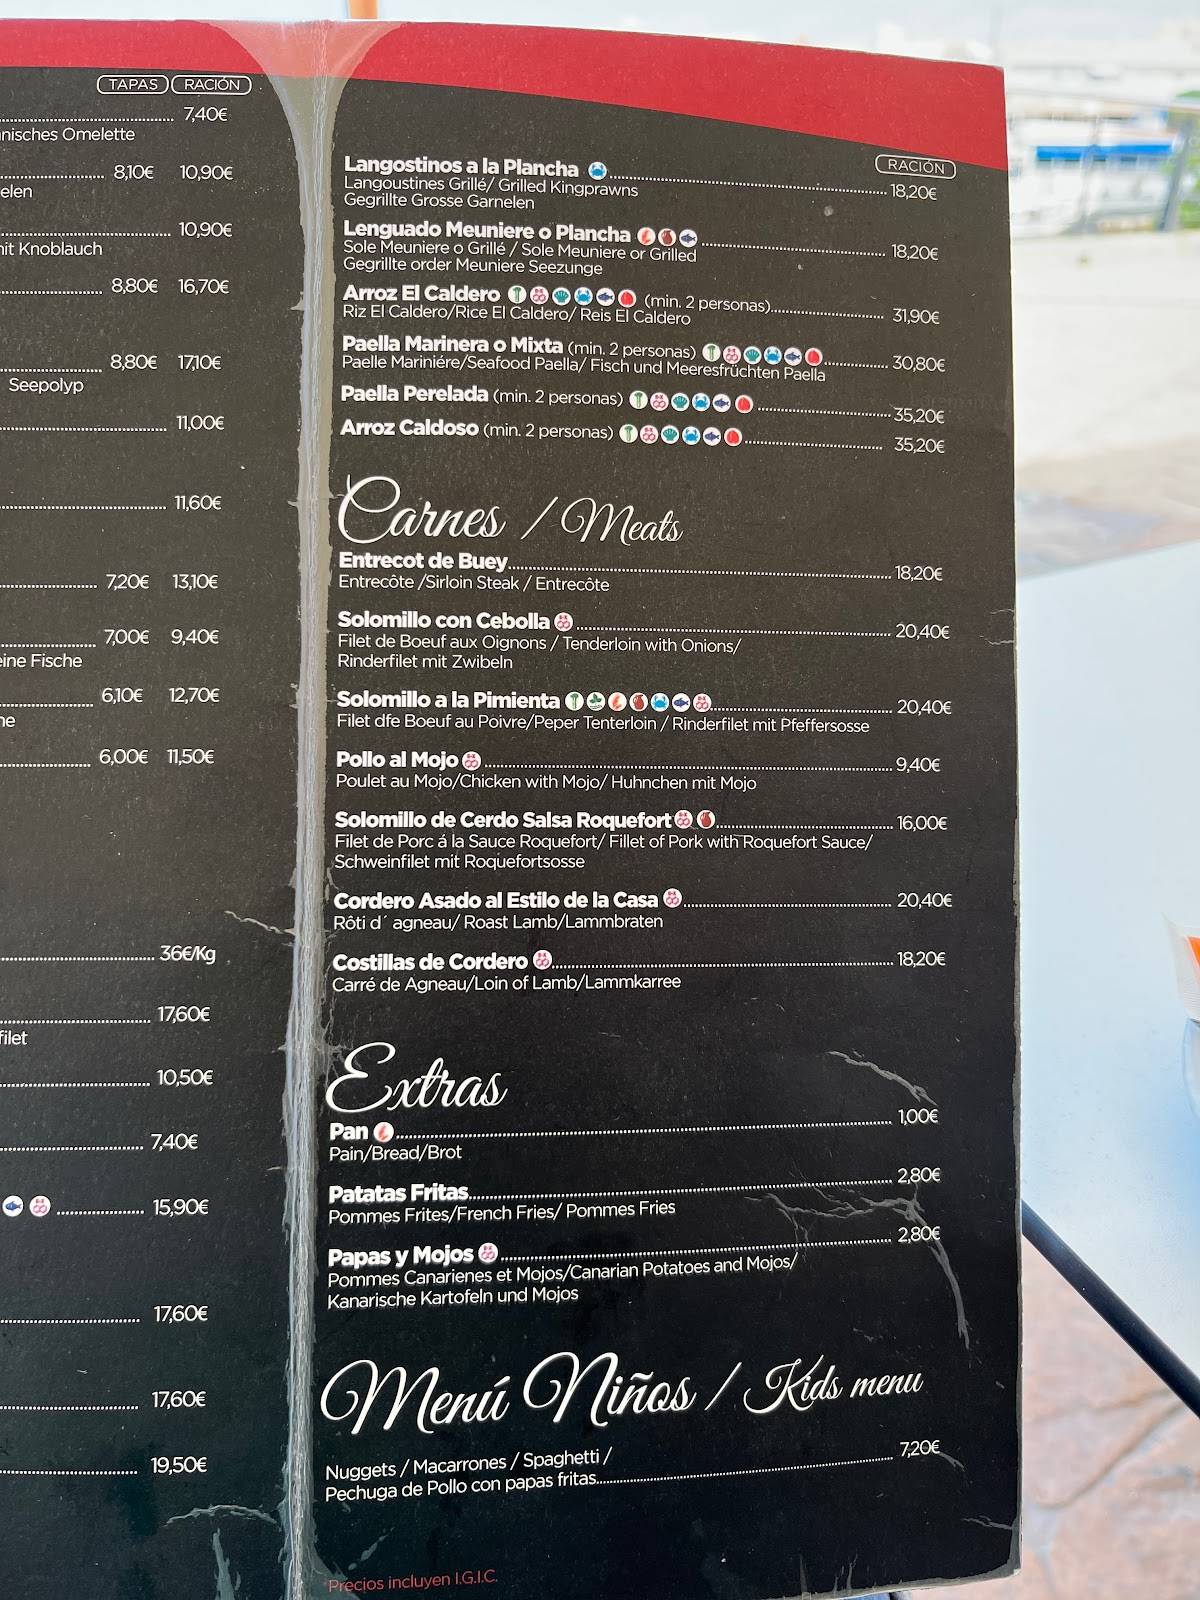 TAPAS RACIÓN
7,40€
nisches Omelette
8,10€ 10,90€
elen
10,90€
nit Knoblauch
8,80€ 16,70€
8,80€ 17,10€
Seepolyp
11,00€
11,60€
7,20€ 13,10€
7,00€ 9,40€
eine Fische
6,10€ 12,70€
ne
6,00€ 11,50€
36€/Kg
17,60€
filet
10,50€
7,40€
15,90€
17,60€
17,60€
19,50€
RACIÓN
Langostinos a la Plancha 18,20€
Langoustines Grillé/ Grilled Kingprawns
Gegrillte Grosse Garnelen
Lenguado Meuniere o Plancha 18,20€
Sole Meuniere o Grillé / Sole Meuniere or Grilled
Gegrillte order Meuniere Seezunge
Arroz El Caldero (min. 2 personas) 31,90€
Riz El Caldero/Rice El Caldero/ Reis El Caldero
Paella Marinera o Mixta (min. 2 personas) 30,80€
Paelle Mariniére/Seafood Paella/ Fisch und Meeresfrüchten Paella
Paella Perelada (min. 2 personas) 35,20€
Arroz Caldoso (min. 2 personas) 35,20€
Carnes / Meats
Entrecot de Buey 18,20€
Entrecôte /Sirloin Steak / Entrecôte
Solomillo con Cebolla 20,40€
Filet de Boeuf aux Oignons / Tenderloin with Onions/
Rinderfilet mit Zwibeln
Solomillo a la Pimienta 20,40€
Filet dfe Boeuf au Poivre/Peper Tenterloin / Rinderfilet mit Pfeffersosse
Pollo al Mojo 9,40€
Poulet au Mojo/Chicken with Mojo/ Huhnchen mit Mojo
Solomillo de Cerdo Salsa Roquefort 16,00€
Filet de Porc á la Sauce Roquefort/ Fillet of Pork with Roquefort Sauce/
Schweinfilet mit Roquefortsosse
Cordero Asado al Estilo de la Casa 20,40€
Rôti d´ agneau/ Roast Lamb/Lammbraten
Costillas de Cordero 18,20€
Carré de Agneau/Loin of Lamb/Lammkarree
Extras
Pan 1,00€
Pain/Bread/Brot
Patatas Fritas 2,80€
Pommes Frites/French Fries/ Pommes Fries
Papas y Mojos 2,80€
Pommes Canarienes et Mojos/Canarian Potatoes and Mojos/
Kanarische Kartofeln und Mojos
Menú Niños / Kids menu
Nuggets / Macarrones / Spaghetti /
Pechuga de Pollo con papas fritas 7,20€
*Precios incluyen I.G.I.C.